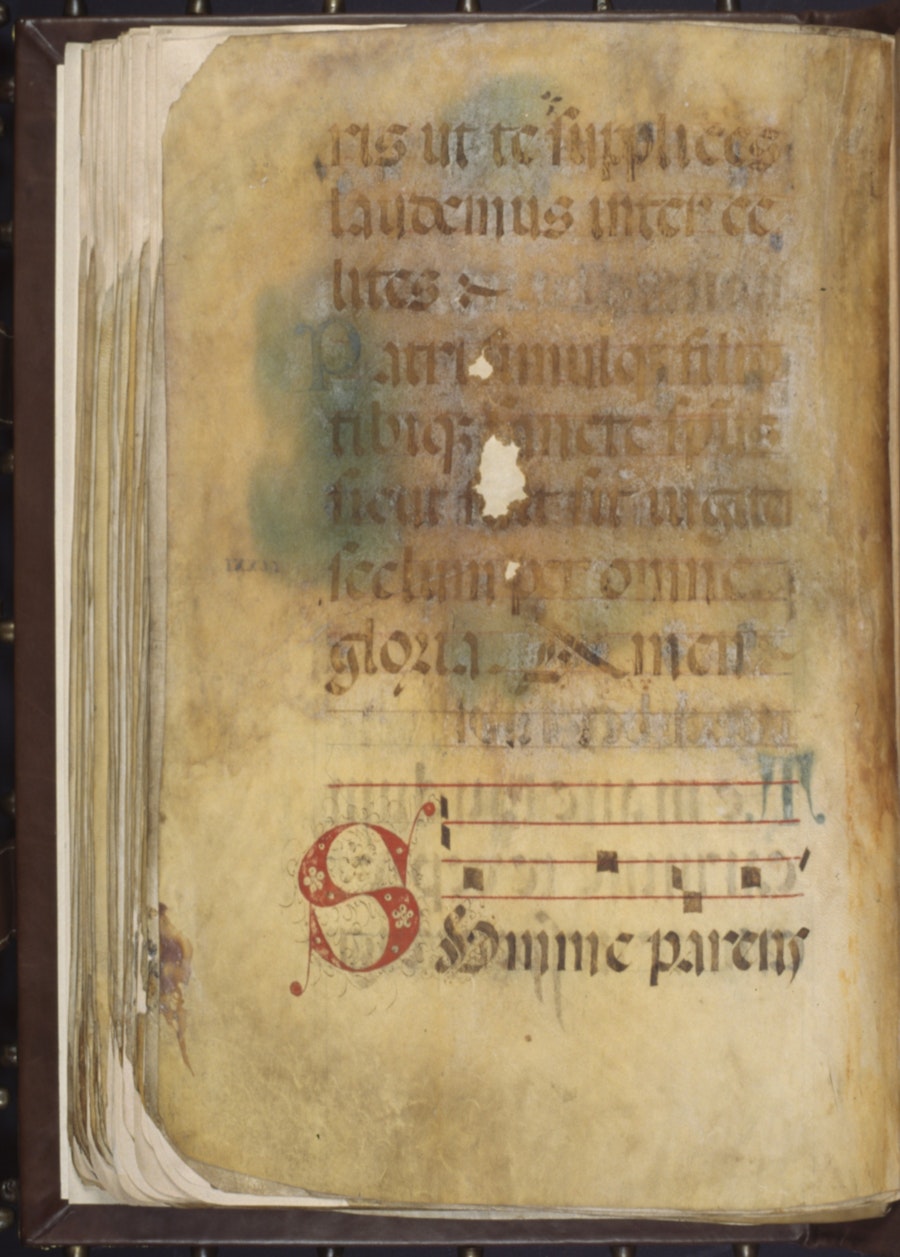 ris ut te supplices
laudemus inter ce
lites
Patri simulq; filio
tibiq; sancte
sicut fuit sit iugiter
seclum per omne
gloria. Amen
Summe parens